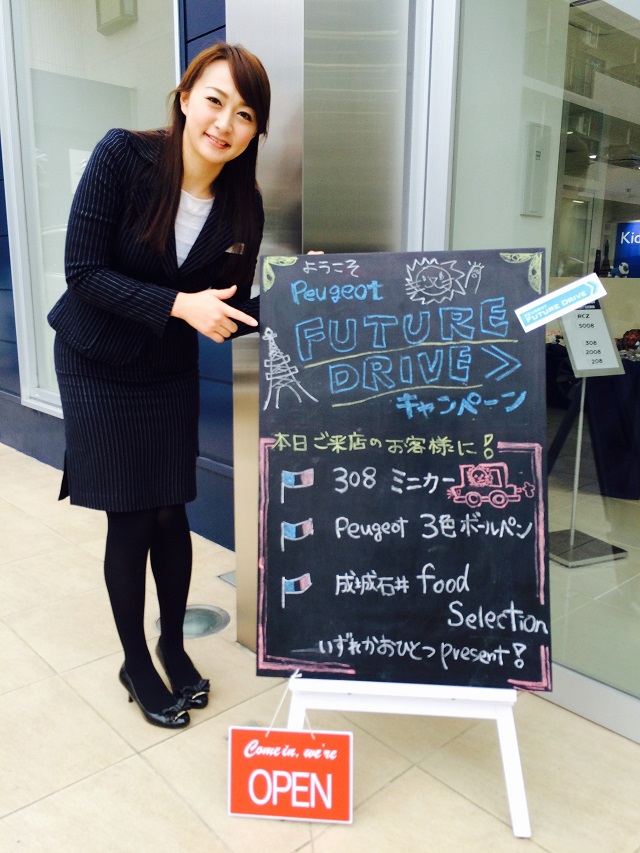 ようこそ
Peugeot
FUTURE
DRIVE>
キャンペーン
本日ご来店のお客様に!
308 ミニカー
Peugeot 3色ボールペン
成城石井 food
Selection
いずれかおひとつpresent!
FUTURE DRIVE
RCZ
3008
308
2008
208
Kid
Come in, we're
OPEN